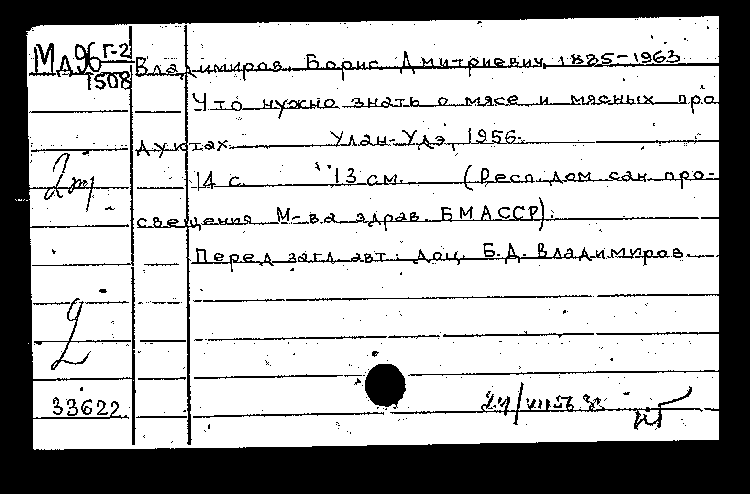 Мд96 Г-2
1508
Владимиров, Борис Дмитриевич, 1885-1963
Что нужно знать о мясе и мясных про
дуктах. Улан-Удэ, 1956.
2 эт
14 с. 13 см. (Респ. дом сан. про-
свещения М-ва здрав. БМАССР).
Перед загл. авт.: доц. Б.Д. Владимиров.
2
33622